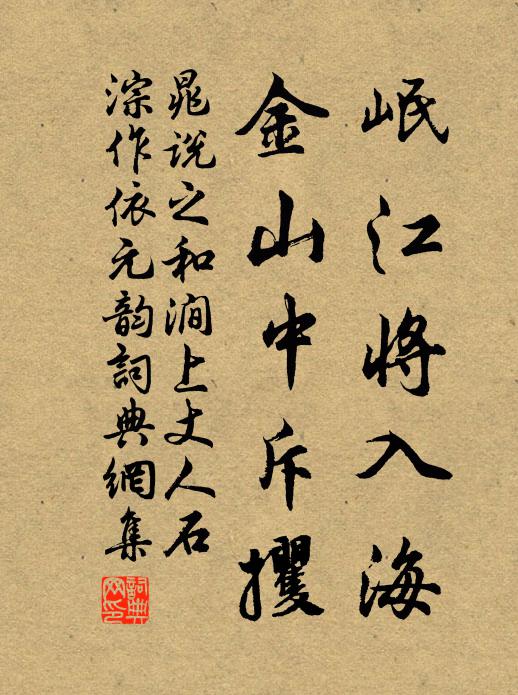 岷江將入海
金山中斥攫
晁說之和澗上丈人石
淙作依元韵詞典網集
詞典网印